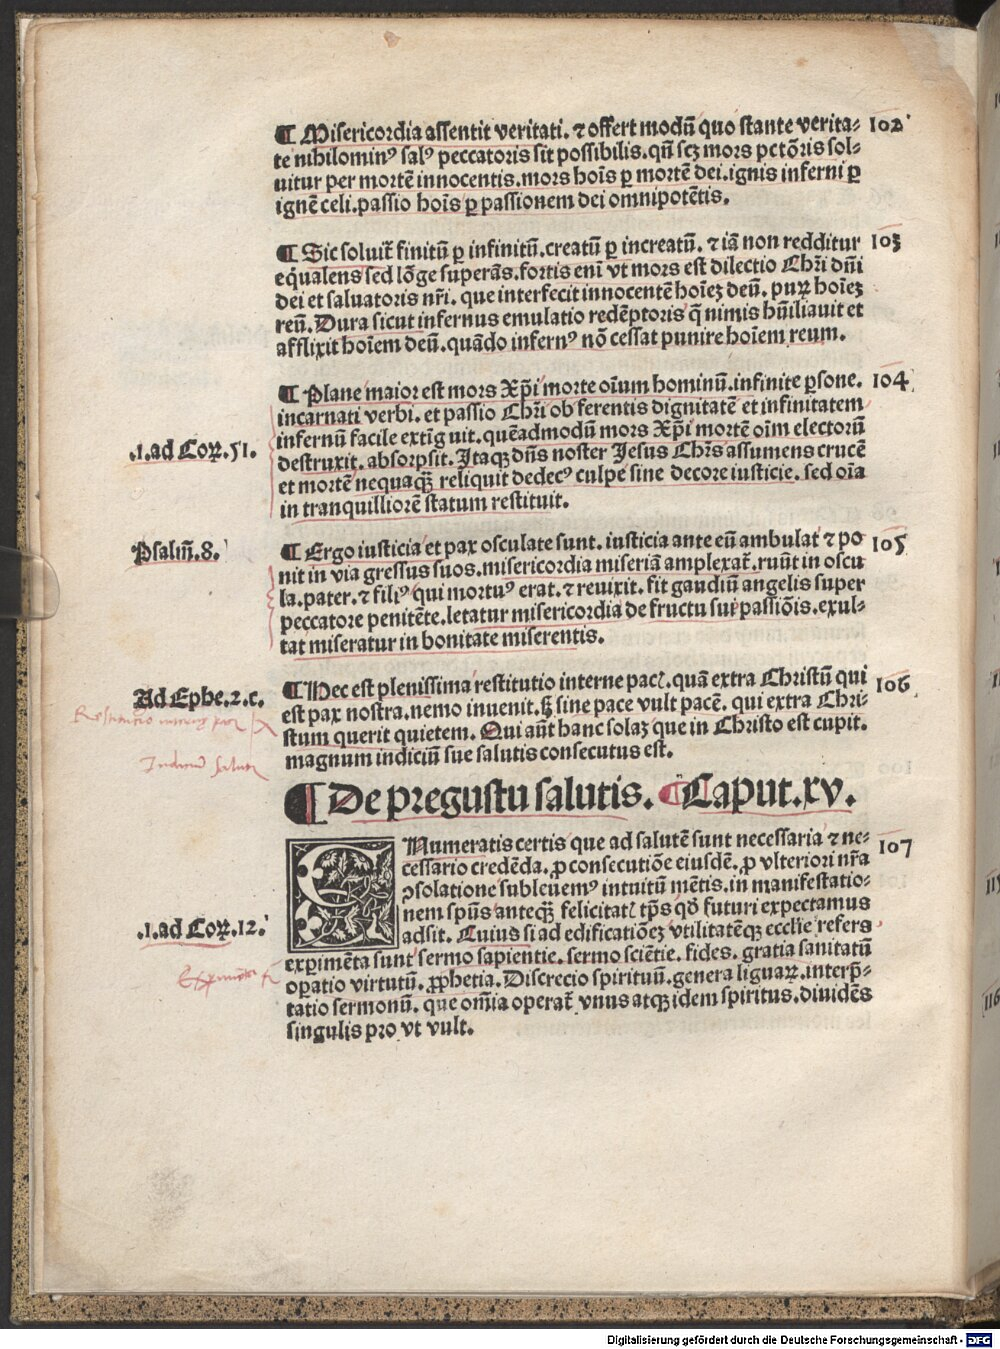 ¶ Misericordia assentit veritati. ⁊ offert modū quo stante verita- 102
te nihilominꝰ salꝰ peccatoris sit possibilis. qn̄ scꝫ mors pctōris sol-
uitur per mortē innocentis. mors hoīs ꝑ mortē dei. ignis inferni ꝑ
ignē celi. passio hoīs ꝑ passionem dei omnipotētis.
¶ Sic soluit̄ finitū ꝑ infinitū. creatū ꝑ increatū. ⁊ iā non redditur 103
eq̄ualens sed lōge superās. fortis enī vt mors est dilectio Chr̄i dn̄i
dei et saluatoris nr̄i. que interfecit innocentē hoīeꝫ deū. puꝝ hoīeꝫ
reū. Dura sicut infernus emulatio redēptoris q̄ nimis hūiliauit et
afflixit hoīem deū. quādo infernꝰ nō cessat punire hoīem reum.
¶ Plane maior est mors Xp̄i morte oīum hominū. infinite ꝑsone. 104
incarnati verbi. et passio Chr̄i ob ferentis dignitatē et infinitatem
infernū facile extīg uit. quēadmodū mors Xp̄i mortē oīm electorū
.1. ad Coꝝ. 51.
destruxit. absorpsit. Itaqꝫ dn̄s noster Jesus Chr̄s assumens crucē
et mortē nequaqꝫ̄ reliquit dedecꝰ culpe sine decore iusticie. sed oīa
in tranquilliorē statum restituit.
Psalm̄. 8.
¶ Ergo iusticia et pax osculate sunt. iusticia ante eū ambulat ⁊ po 105
nit in via gressus suos. misericordia miseriā amplexat̄. ruūt in oscu
la. pater. ⁊ filiꝰ qui mortuꝰ erat. ⁊ reuixit. fit gaudiū angelis super
peccatore penitēte. letatur misericordia de fructu sui passiōis. exul-
tat miseratur in bonitate miserentis.
Ad Ephe. 2. c.
¶ Hec est plenissima restitutio interne pacꝭ. quā extra Christū qui 106
est pax nostra. nemo inuenit. sꝫ sine pace vult pacē. qui extra Chri-
stum querit quietem. Qui aūt hanc solaꝫ que in Christo est cupit.
magnum indiciū sue salutis consecutus est.
Restitutio interne pacꝭ
Indiciū salutꝭ
¶ De pregustu salutis. ¶ Caput. xv.
ENumeratis certis que ad salutē sunt necessaria ⁊ ne- 107
cessario credēda. ꝓ consecutiōe eiusdē. ꝓ vlteriori nr̄a
ↄsolatione subleuemꝰ intuitū mētis. in manifestatio-
nem spūs anteqꝫ̄ felicitatꝭ tp̄s qd̄ futuri expectamus
.1. ad Coꝝ. 12.
adsit. Cuius si ad edificatiōeꝫ vtilitatēqꝫ ecclīe refers
exꝑimēta sunt sermo sapientie. sermo sciētie. fides. gratia sanitatū
oꝑatio virtutū. ꝓphetia. Discrecio spirituū. genera liguaꝝ. interp̄-
tatio sermonū. que om̄ia operat̄ vnus atqꝫ idem spiritus. diuidēs
singulis pro vt vult.
Digitalisierung gefördert durch die Deutsche Forschungsgemeinschaft - DFG